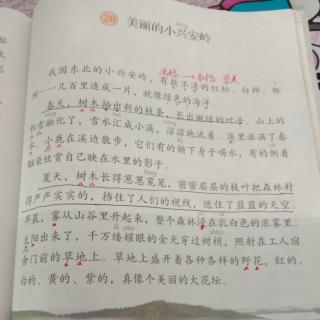 20 美丽的小兴安岭
我国东北的小兴安岭，有数不清的红松、白桦、栎
树……几百里连成一片，就像绿色的海洋。
春天，树木抽出新的枝条，长出嫩绿的叶子。山上的
积雪融化了，雪水汇成小溪，淙淙地流着。溪里涨满了春
水。小鹿在溪边散步，它们有的俯下身子喝水，有的侧着
脑袋欣赏自己映在水里的影子。
夏天，树木长得葱葱茏茏，密密层层的枝叶把森林封
得严严实实的，挡住了人们的视线，遮住了蓝蓝的天空。
早晨，雾从山谷里升起来，整个森林浸在乳白色的浓雾里。
太阳出来了，千万缕耀眼的金光穿过树梢，照射在工人宿
舍门前的草地上。草地上盛开着各种各样的野花，红的、
白的、黄的、紫的，真像个美丽的大花坛。